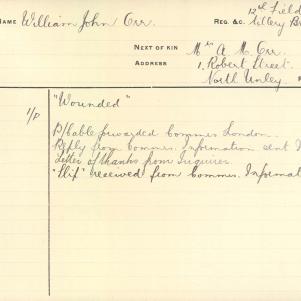 NAME William John Orr. REG. &C. 12th Field
tillery Br
NEXT OF KIN Mrs A M. Orr.
ADDRESS 1, Robert Street.
North Unley.
"Wounded"
1/P
B/Cable forwarded Commrs London.
Reply from Commrs. Information sent
Letter of thanks from Inquirer.
"Slip" received from Commrs. Informat